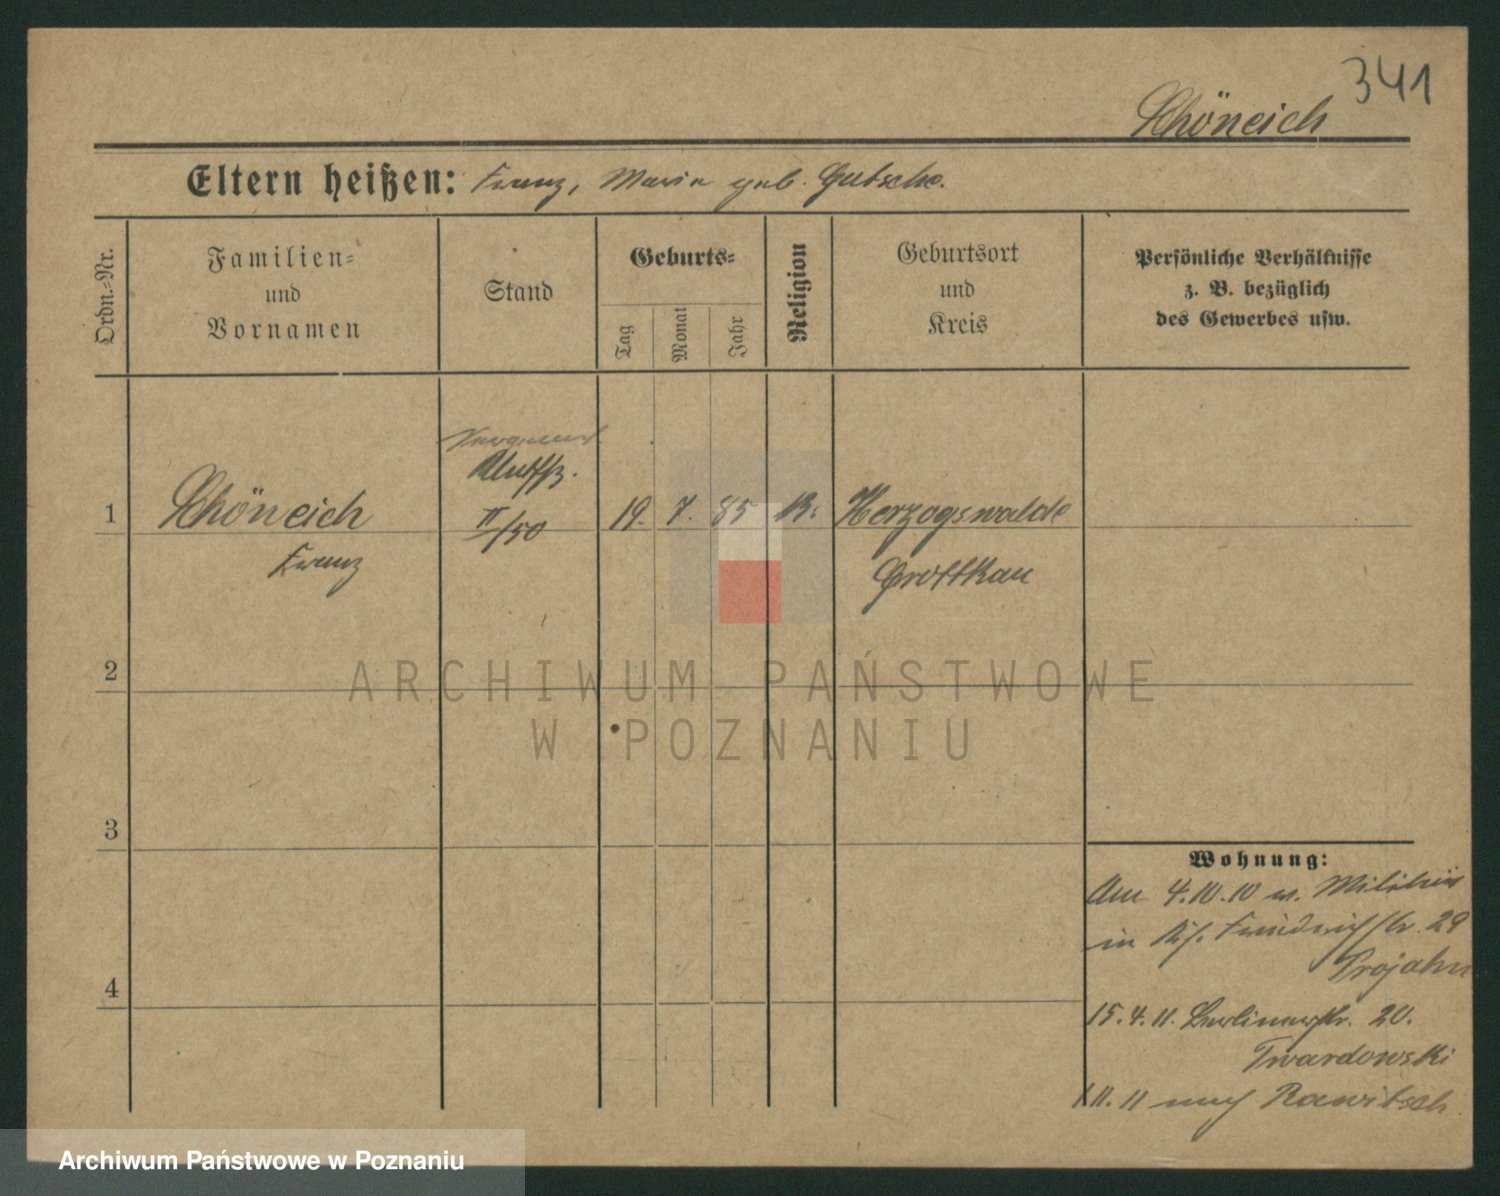 341
Schöneich
Eltern heißen: Franz, Maria geb. Gutsche.
Ordn.-Nr.
Familien-
und
Vornamen
Stand
Geburts-
Tag
Monat
Jahr
Religion
Geburtsort
und
Kreis
Persönliche Verhältnisse
z. B. bezüglich
des Gewerbes usw.
Sergeant
Untffz.
1 Schöneich II/50 19. 7. 85 K. Herzogswalde
Franz Grottkau
2
ARCHIWUM PAŃSTWOWE
W POZNANIU
3
Wohnung:
Am 4.10.10 v. Militär
in Ks. Friedrichstr. 29
Projahn
4
15.4.11. Berlinerstr. 20.
Twardowski
1.11.11 nach Rawitsch
Archiwum Państwowe w Poznaniu